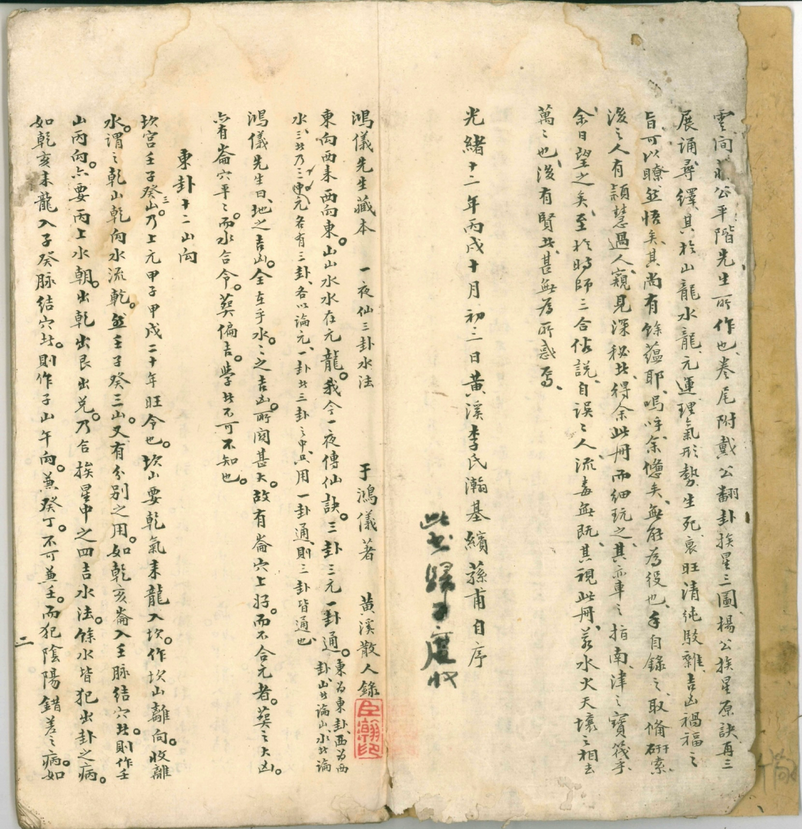 雲間蔣公平階先生所作也、卷尾附戴公翻卦挨星三圖楊公挨星原訣再三
展誦尋繹其於山龍水龍元運理氣形勢生死衰旺清純駁雜吉凶禍福之
旨、可以瞭然悟矣其尚有餘蘊耶、嗚呼余憊矣、無能為役也、手自錄之、取備研索
後之人有穎慧過人、窺見深秘者、得余此冊而細玩之、其亦車之指南、津之寶筏乎、
余日望之矣、至於時師三合佔說、自誤誤人流毒無既其視此冊、若水火天壤之相去
萬萬也、後有賢者、甚無為所惑焉、
光緒十二年丙戌十月初三日黃溪李氏瀚基續蓀甫自序
此書歸子 收
鴻儀先生藏本 一夜仙三卦水法 于鴻儀著 黃溪散人錄
東向西來西向東。山山水水在元龍。我今一夜傳仙訣。三卦三元一卦通。東為東卦、西為西卦、山者論山、水者論
水、三者乃三元各有三卦、各以論元、一卦者三卦之中只用一卦通、則三卦皆通也
鴻儀先生曰、地之吉凶。全在乎水。水之吉凶。所關甚大。故有崙穴上好。而不合元者。葬之大凶。
亦有崙穴平平。而水合令。葬偏吉。學者不可不知也。
東卦十二山向
坎宮壬子癸三山。乃上元甲子甲戌二十年旺令也。坎山要乾氣來龍入坎。作坎山離向。收離
水。謂之乾山乾向水流乾。然壬子癸三山。又有分別之用。如乾亥崙入壬脈結穴者。則作壬
山丙向。亦要丙上水朝。出乾出艮出兌。乃合挨星中之四吉水法。餘水皆犯出卦之病。
如乾亥來龍入子癸脈結穴者。則作子山午向。兼癸丁。不可兼壬。而犯陰陽錯差之病。如
二